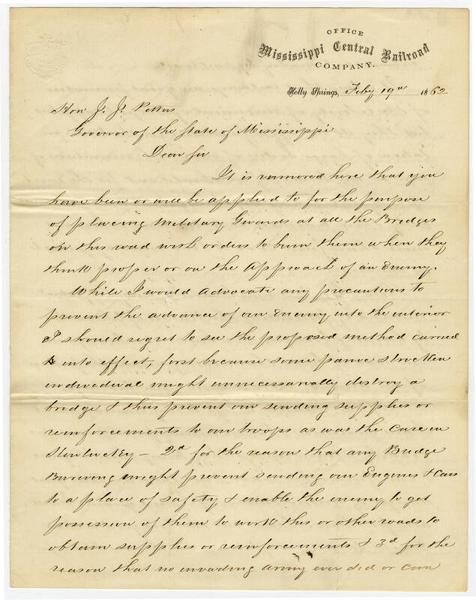 OFFICE
Mississippi Central Railroad
COMPANY.
Holly Springs, Feby 19th 1862
Hon J. J. Pettus
Governor of the State of Mississippi
Dear Sir
It is rumored here that you
have been or will be applied to for the purpose
of placing Military Guards at all the Bridges
on this road with orders to burn them when they
think proper or on the Approach of an Enemy.
While I would Advocate any precautions to
prevent the advance of our Enemy into the interior
I should regret to see the proposed method carried
into effect, first because some panic stricken
individual might unnecessarially destroy a
bridge & thus prevent our sending supplies or
reinforcements to our troops as was the case in
Kentucky – 2d for the reason that any Bridge
Burning might prevent sending our Engines & Cars
to a place of safety & enable the enemy to get
possession of them to work this or other roads to
obtain supplies or reinforcements & 3d for the
reason that no invading Army ever did or can